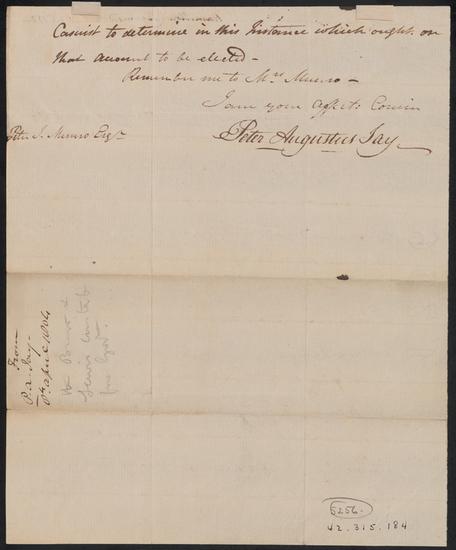 Casuist to determine in this Instance which ought on
that account to be elected –
Remember me to Mrs Munro –
I am your affecte Cousin
Peter Augustus Jay
Peter J. Munro Esqr
From
P. A. Jay –
april 1804
5256.
42.315.184